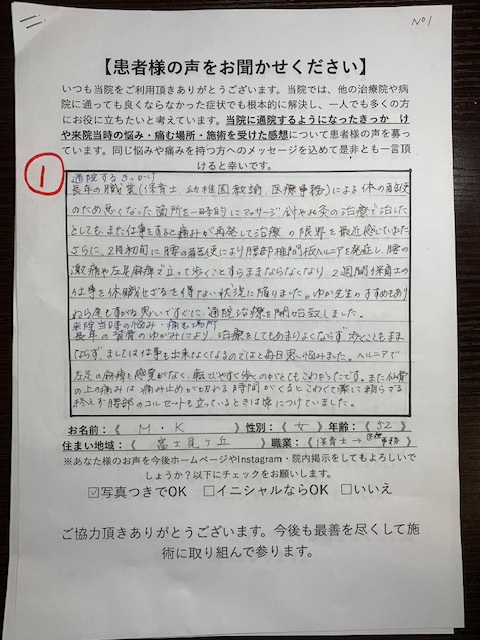 No1
【患者様の声をお聞かせください】
いつも当院をご利用頂きありがとうございます。当院では、他の治療院や病
院に通っても良くならなかった症状でも根本的に解決し、一人でも多くの方
にお役に立ちたいと考えています。当院に通院するようになったきっか け
や来院当時の悩み・痛む場所・施術を受けた感想について患者様の声を募っ
ています。同じ悩みや痛みを持つ方へのメッセージを込めて是非とも一言頂
けると幸いです。
1
通院するきっかけ
長年の職業(保育士 幼稚園教諭、医療事務)による体の酷使
のため悪くなった箇所を一時的にマッサージ 針やお灸の治療で治した
としても、また仕事をすると痛みが再発して治療 の限界を最近感じていました
さらに、2月初旬に腰の酷使により腰部椎間板ヘルニアを発症し、腰の
激痛や左足麻痺で立って歩くことすらままならなくなり、2週間保育士の
仕事を休職せざるを得ない状況に陥りました。ゆか先生のすすめもあり
わらをもすがる思いですぐに、通院治療を開始致しました。
来院当時の悩み・痛む場所
長年の習慣のゆがみにより、治療をしてもあまりよくならず 歩くこともまま
ならず、ましては仕事も出来なくなるのではと毎日思い悩みました。ヘルニアで
左足の麻痺と感覚がなく、転びやすく歩くのがとてもこわかったです。また仙骨
の上の痛みは 痛み止めが切れる時間がくるとこわくて薬に頼らざる
終えず 腰部のコルセットも立っているときは常につけていました。
お名前:《 M・K 》性別:《 女 》年齢:《 52 》
住まい地域:《 富士見ヶ丘 》職業:《 保育士→医療事務 》
※あなた様のお声を今後ホームページやInstagram・院内掲示をしてもよろしいで
しょうか？以下にチェックをお願いします。
☑写真つきでOK □イニシャルならOK □いいえ
ご協力頂きありがとうございます。今後も最善を尽くして施
術に取り組んで参ります。